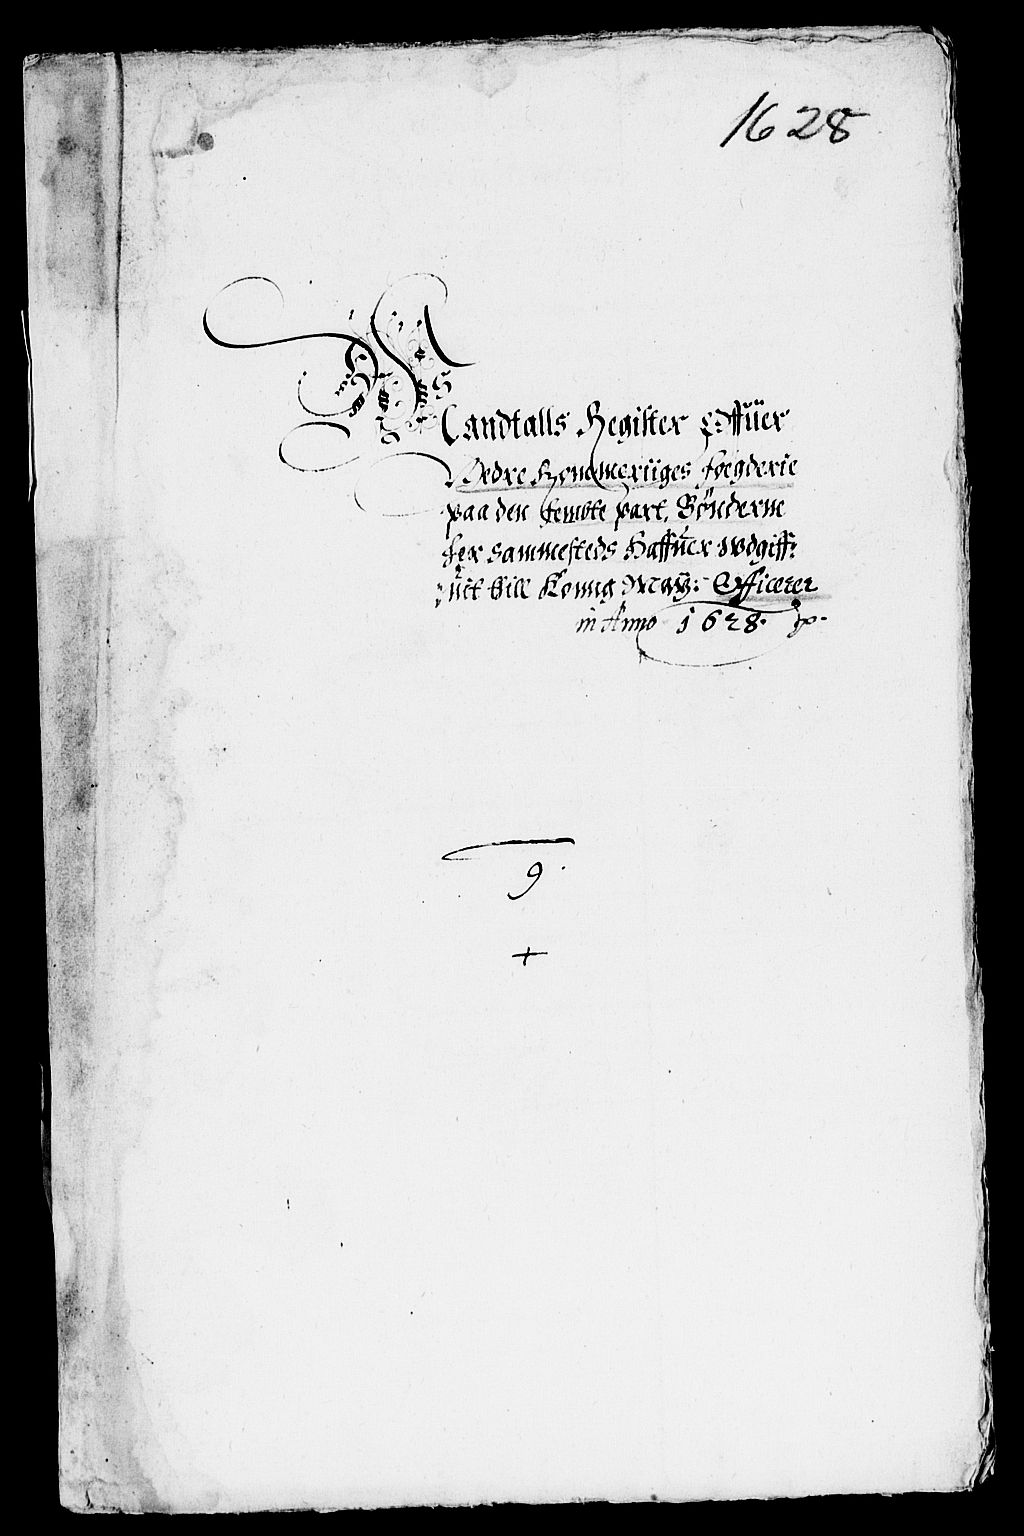 1628
Mandtalls Register Offuer
Nedre Rommeriiges foegderie
paa den femte part, Bönderne
her sammesteds Haffuer wdgiff:
uit till Konng May: Officerer
in Anno 1628.
9.
+